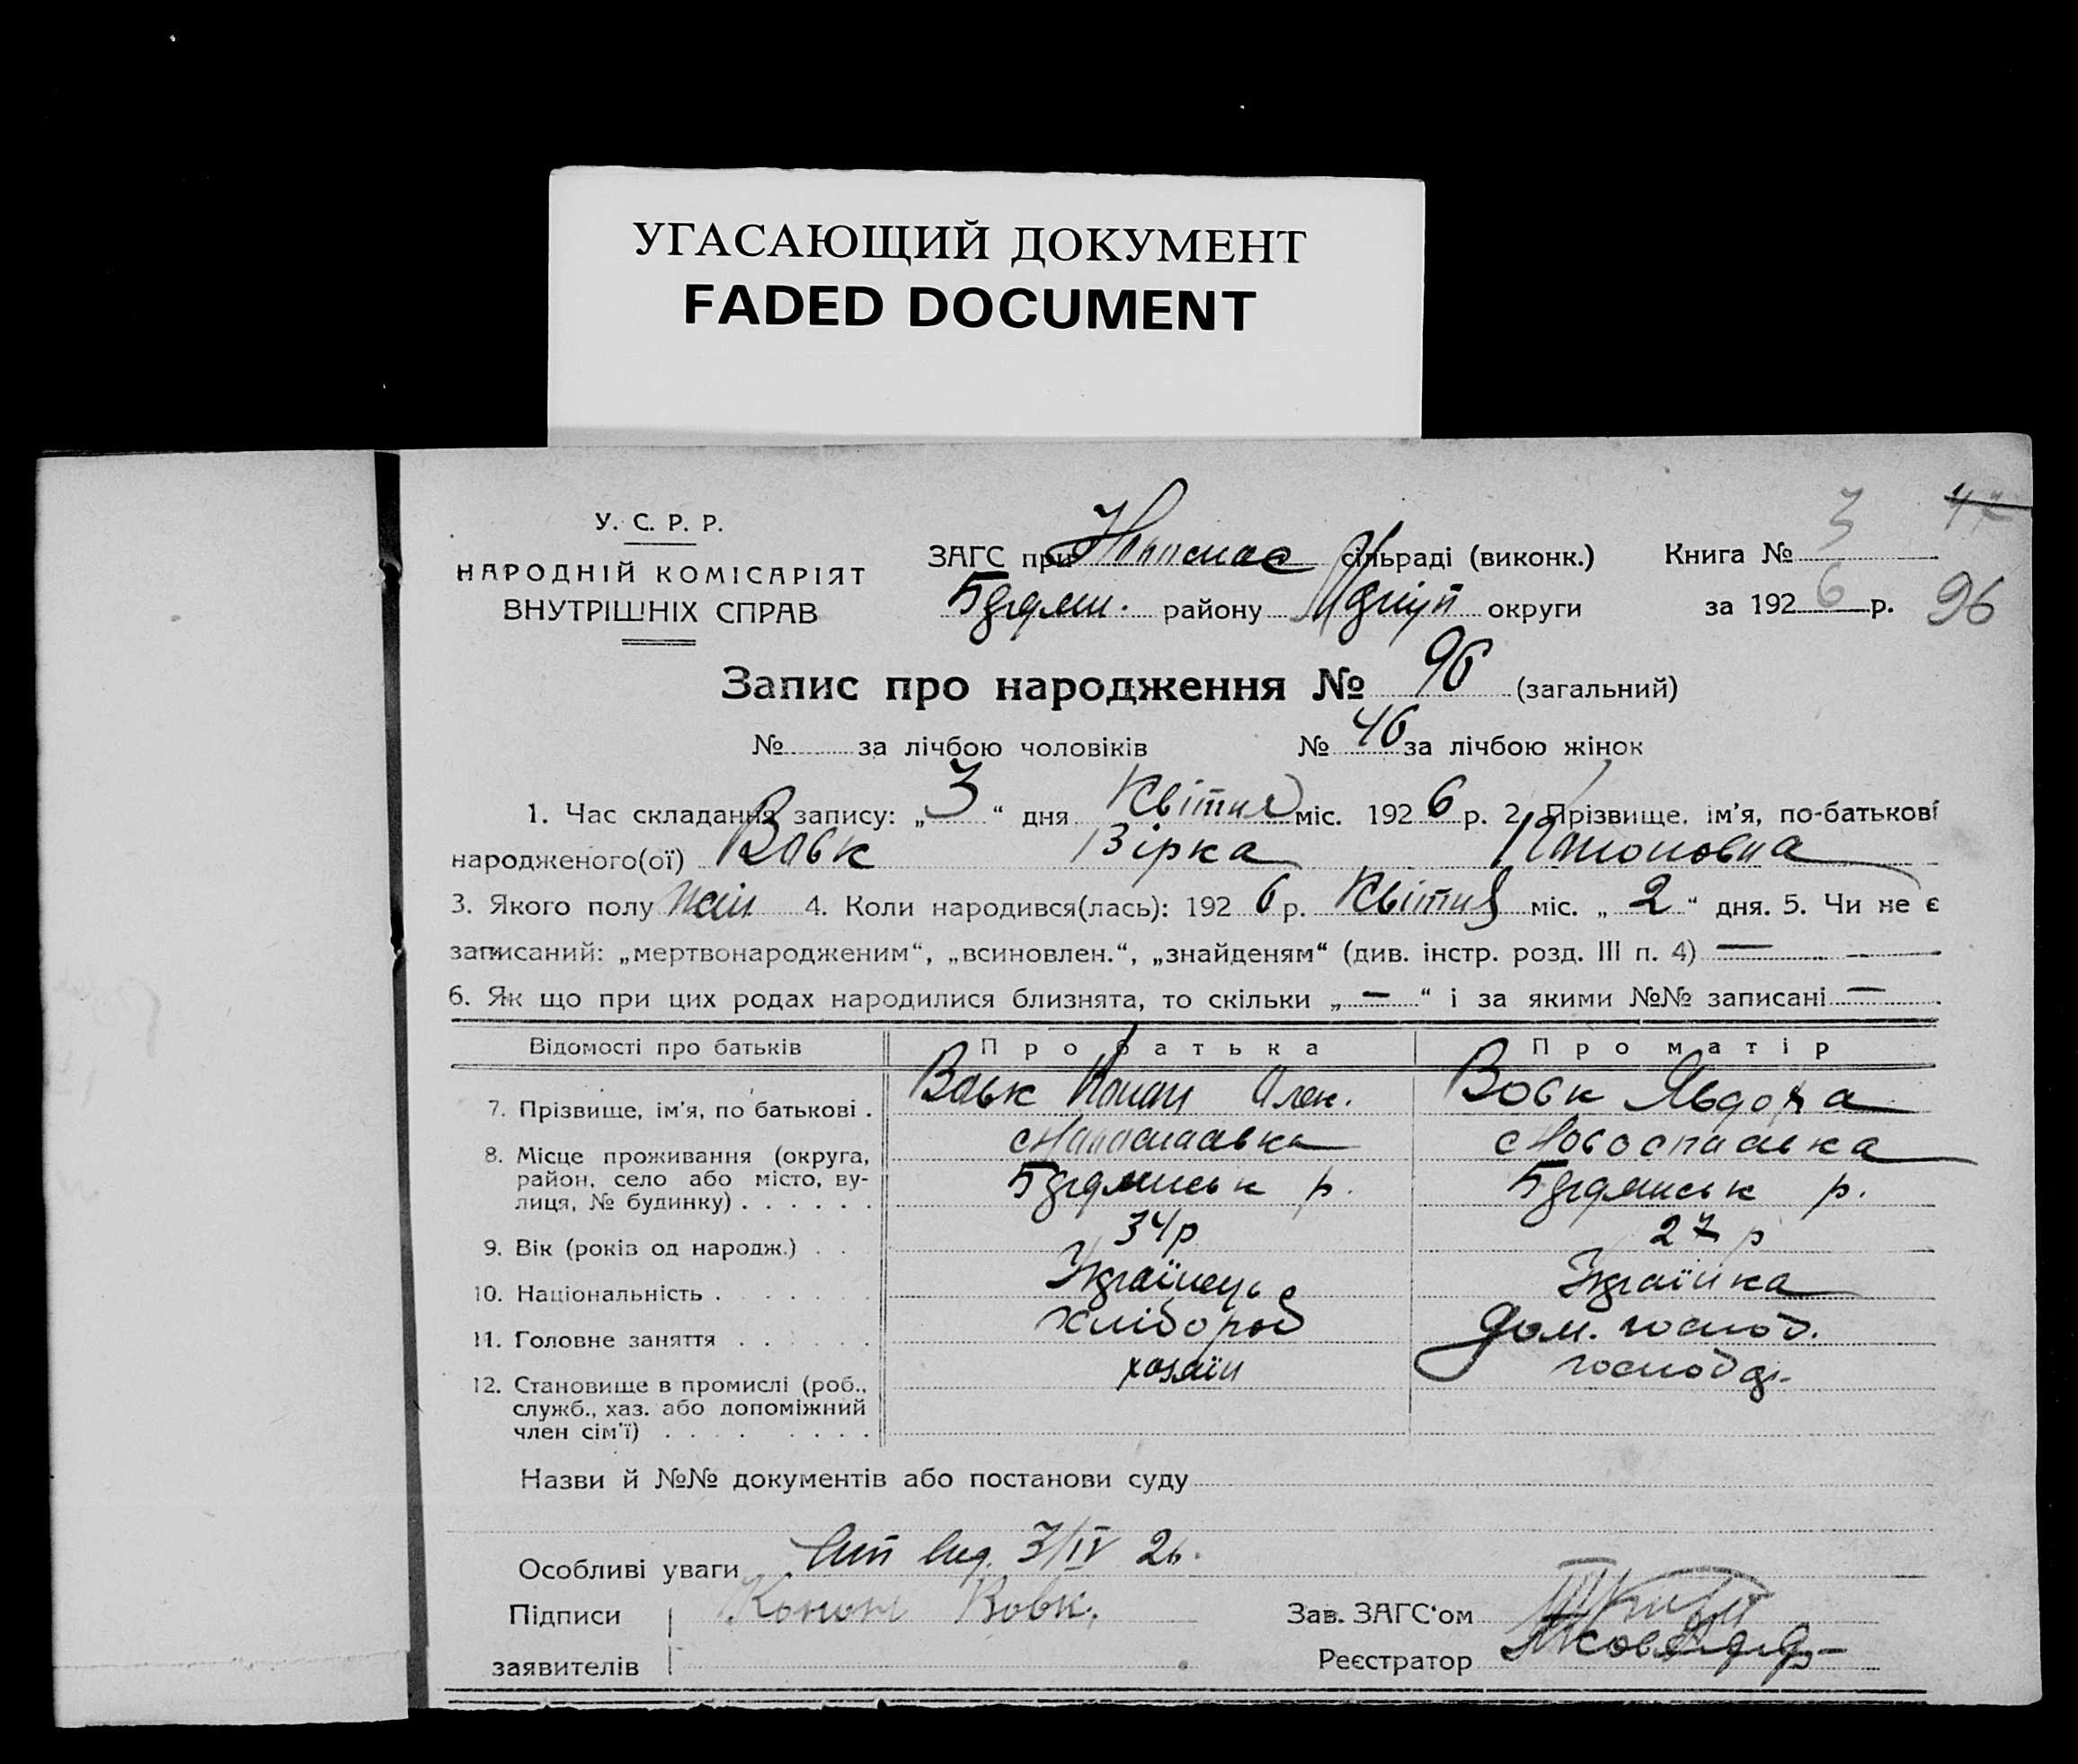 УГАСАЮЩИЙ ДОКУМЕНТ
FADED DOCUMENT
У. С. Р. Р.
НАРОДНІЙ КОМІСАРІЯТ
ВНУТРІШНІХ СПРАВ
ЗАГС при Новоспас сільраді (виконк.)
район у округи
Книга № 3
за 1926 р. 96
Запис про народження № 96 (загальний)
№ за лічбою чоловіків № 46 за лічбою жінок
1. Час складання запису: „3“ дня Квітня міс. 1926 р. 2. Прізвище, ім'я, по-батькові
народженого(ої) Вовк Зірка Кононовна
3. Якого полу жін 4. Коли народився(лась): 1926 р. Квітня міс. „2“ дня. 5. Чи не є
записаний: „мертвонародженим“, „всиновлен.“, „знайденям“ (див. інстр. розд. III п. 4) —
6. Як що при цих родах народилися близнята, то скільки „—“ і за якими №№ записані —
Відомості про батьків Про батька Про матір
7. Прізвище, ім'я, по батькові . Вовк Конон Олек. Вовк Явдоха
8. Місце проживання (округа, район, село або місто, вулиця, № будинку) . . . . . . Новоспаська Бердянськ р. Новоспаська Бердянськ р.
9. Вік (років од народж.) . . 34 р 27 р
10. Національність . . . . . . Українець Українка
11. Головне заняття . . . . . хлібороб дом. господ.
12. Становище в промислі (роб., служб., хаз. або допоміжний член сім'ї) . . . . . . . . хозяїн
Назви й №№ документів або постанови суду
Особливі уваги 3/IV 26.
Підписи заявителів Конон Вовк.
Зав. ЗАГС'ом
Реєстратор